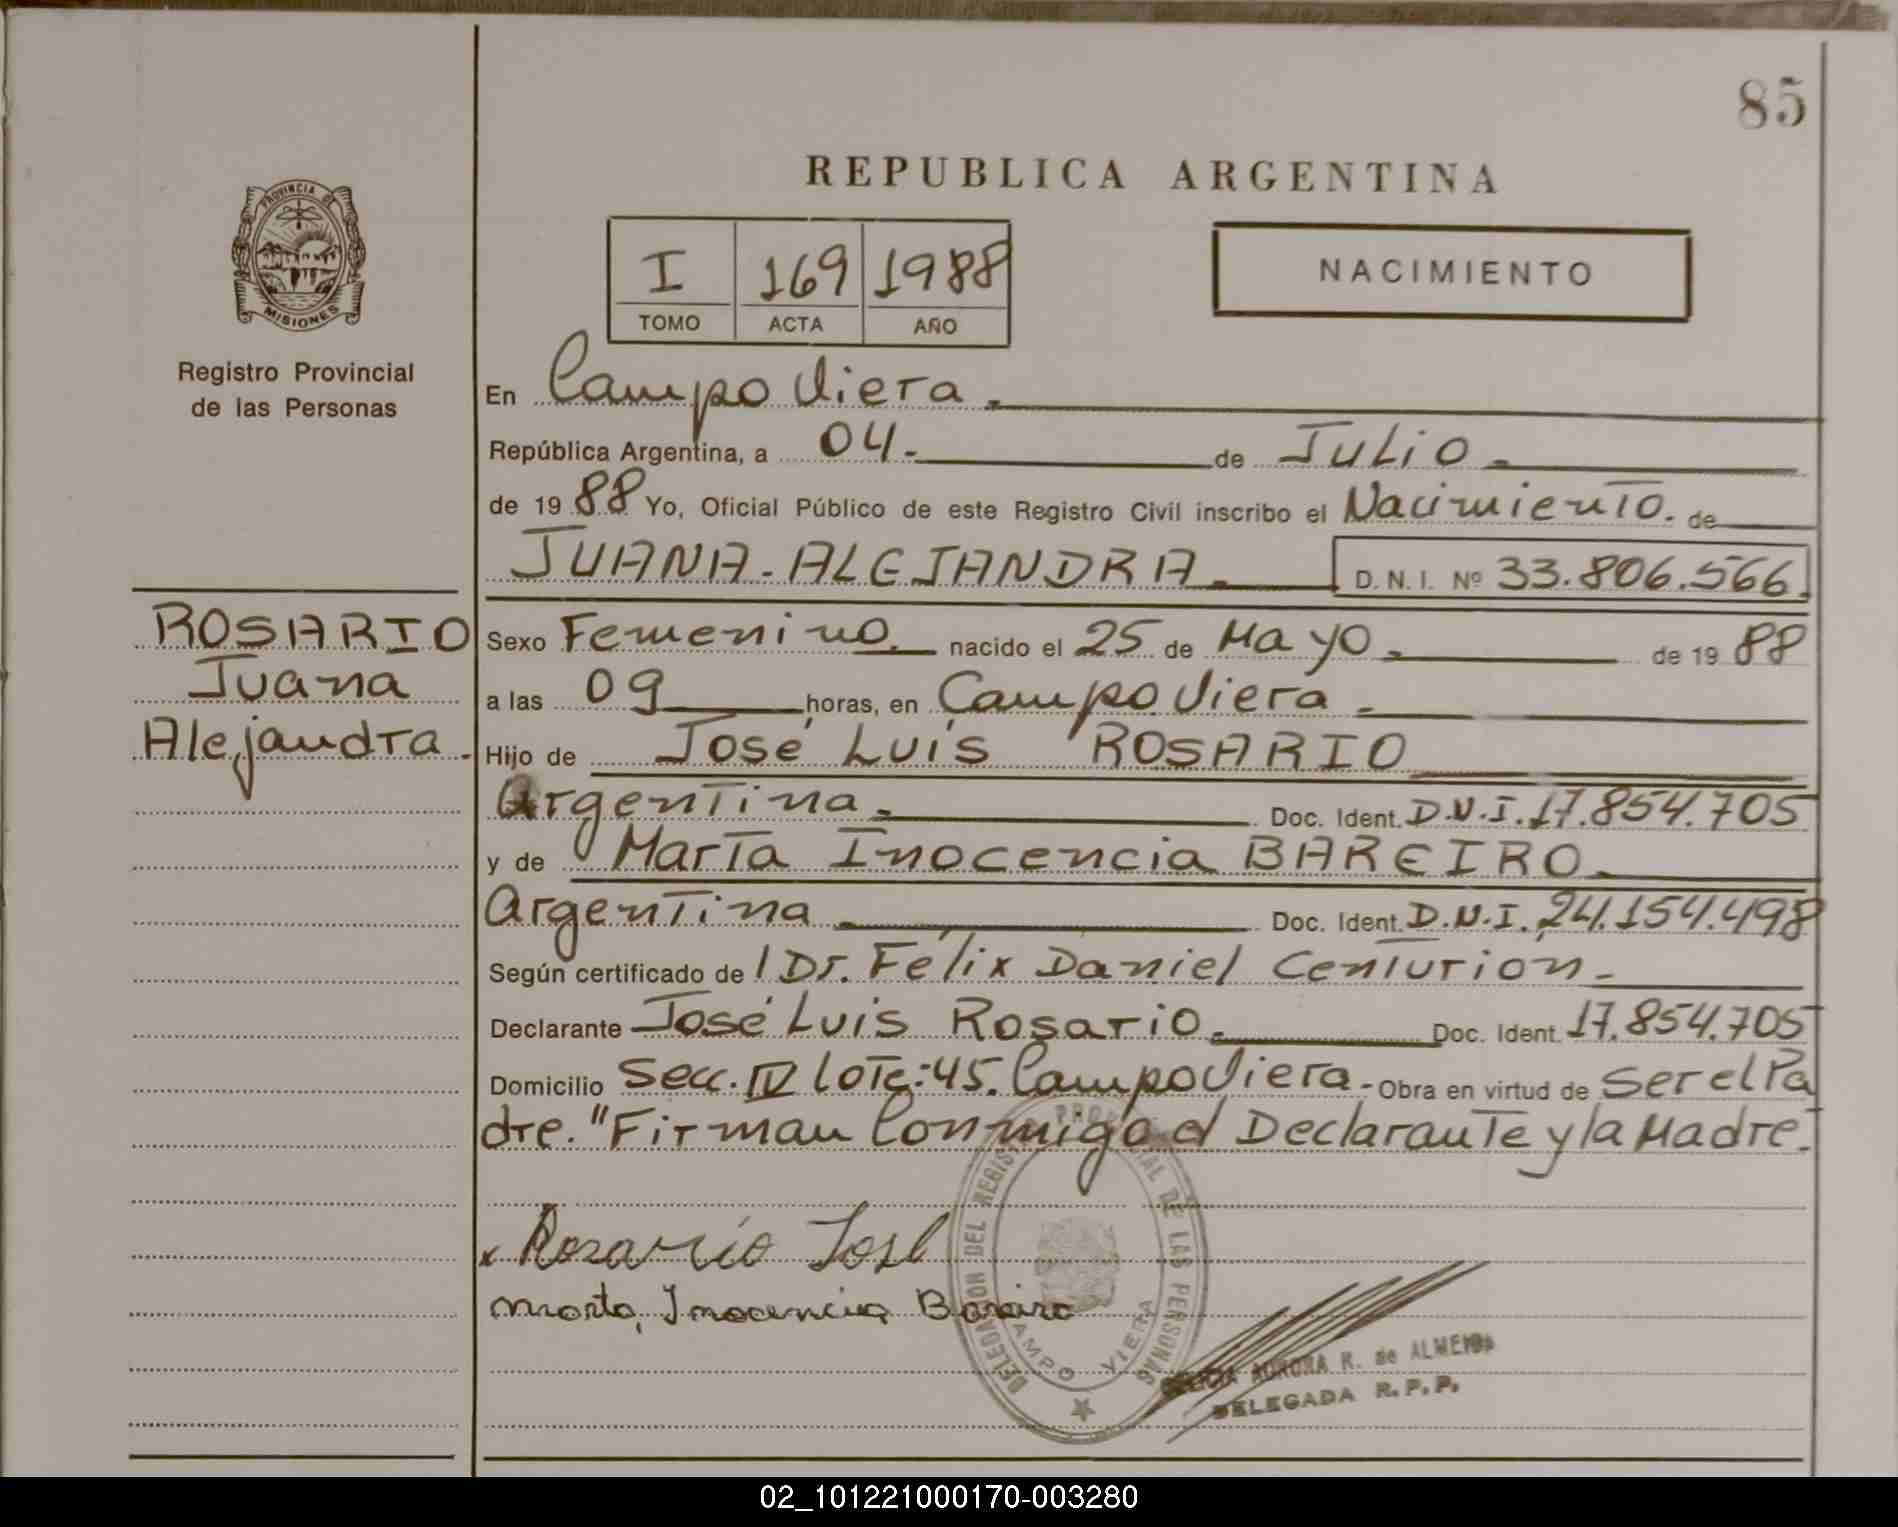 85
REPUBLICA ARGENTINA
PROVINCIA DE
MISIONES
Registro Provincial
de las Personas
I 169 1988
TOMO ACTA AÑO
NACIMIENTO
En Campo Viera.
República Argentina, a 04. de Julio.
de 19 88 Yo, Oficial Público de este Registro Civil inscribo el Nacimiento. de
JUANA ALEJANDRA. D.N.I. Nº 33.806.566.
ROSARIO
Juana
Alejandra.
Sexo Femenino. nacido el 25 de Mayo. de 19 88
a las 09 horas, en Campo Viera.
Hijo de José Luis ROSARIO
Argentina. Doc. Ident. D.N.I. 17.854.705
y de Marta Inocencia BAREIRO.
Argentina Doc. Ident. D.N.I. 24.154.498
Según certificado de / Dr. Félix Daniel Centurion.
Declarante José Luis Rosario. Doc. Ident. 17.854.705
Domicilio Secc. IV Lote: 45. Campo Viera. Obra en virtud de Ser el Pa
dre. "Firman Conmigo el Declarante y la Madre.
x Rosario José
Marta, Inocencia Bareiro
DELEGACION DEL REGISTRO PROVINCIAL DE LAS PERSONAS
CAMPO VIERA
AURORA R. de ALMEIDA
DELEGADA R.P.P.
02_101221000170-003280